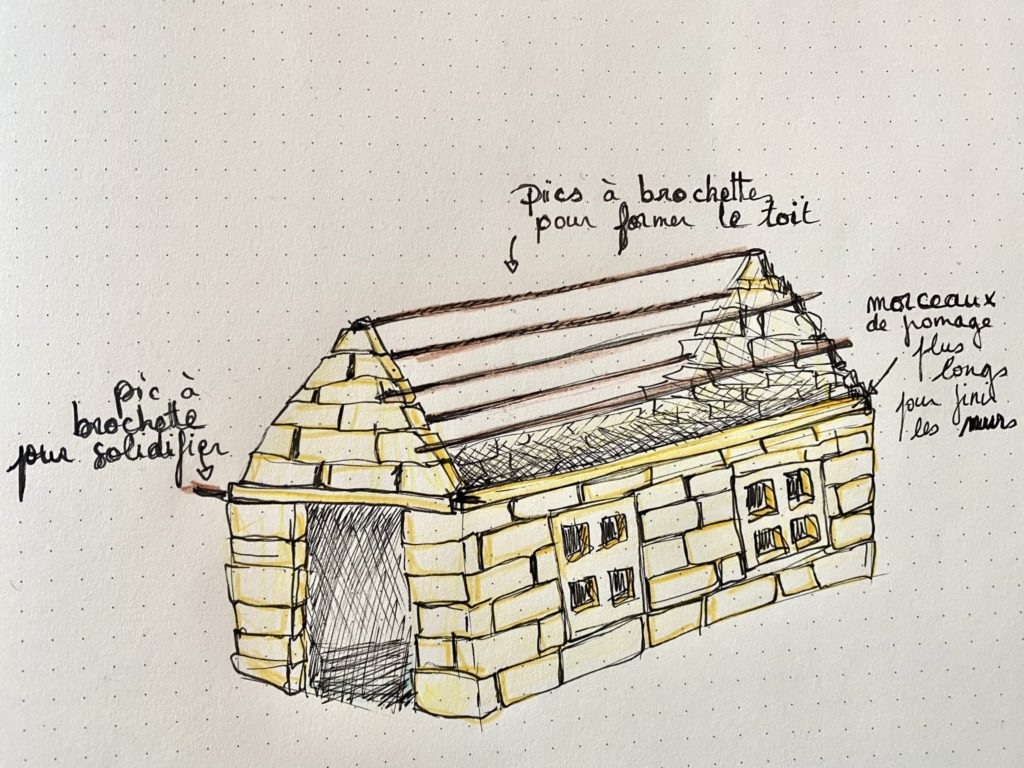 pics à brochette
pour former le toit
morceaux
de fromage
plus
longs
pour finir
les murs
pic à
brochette
pour solidifier